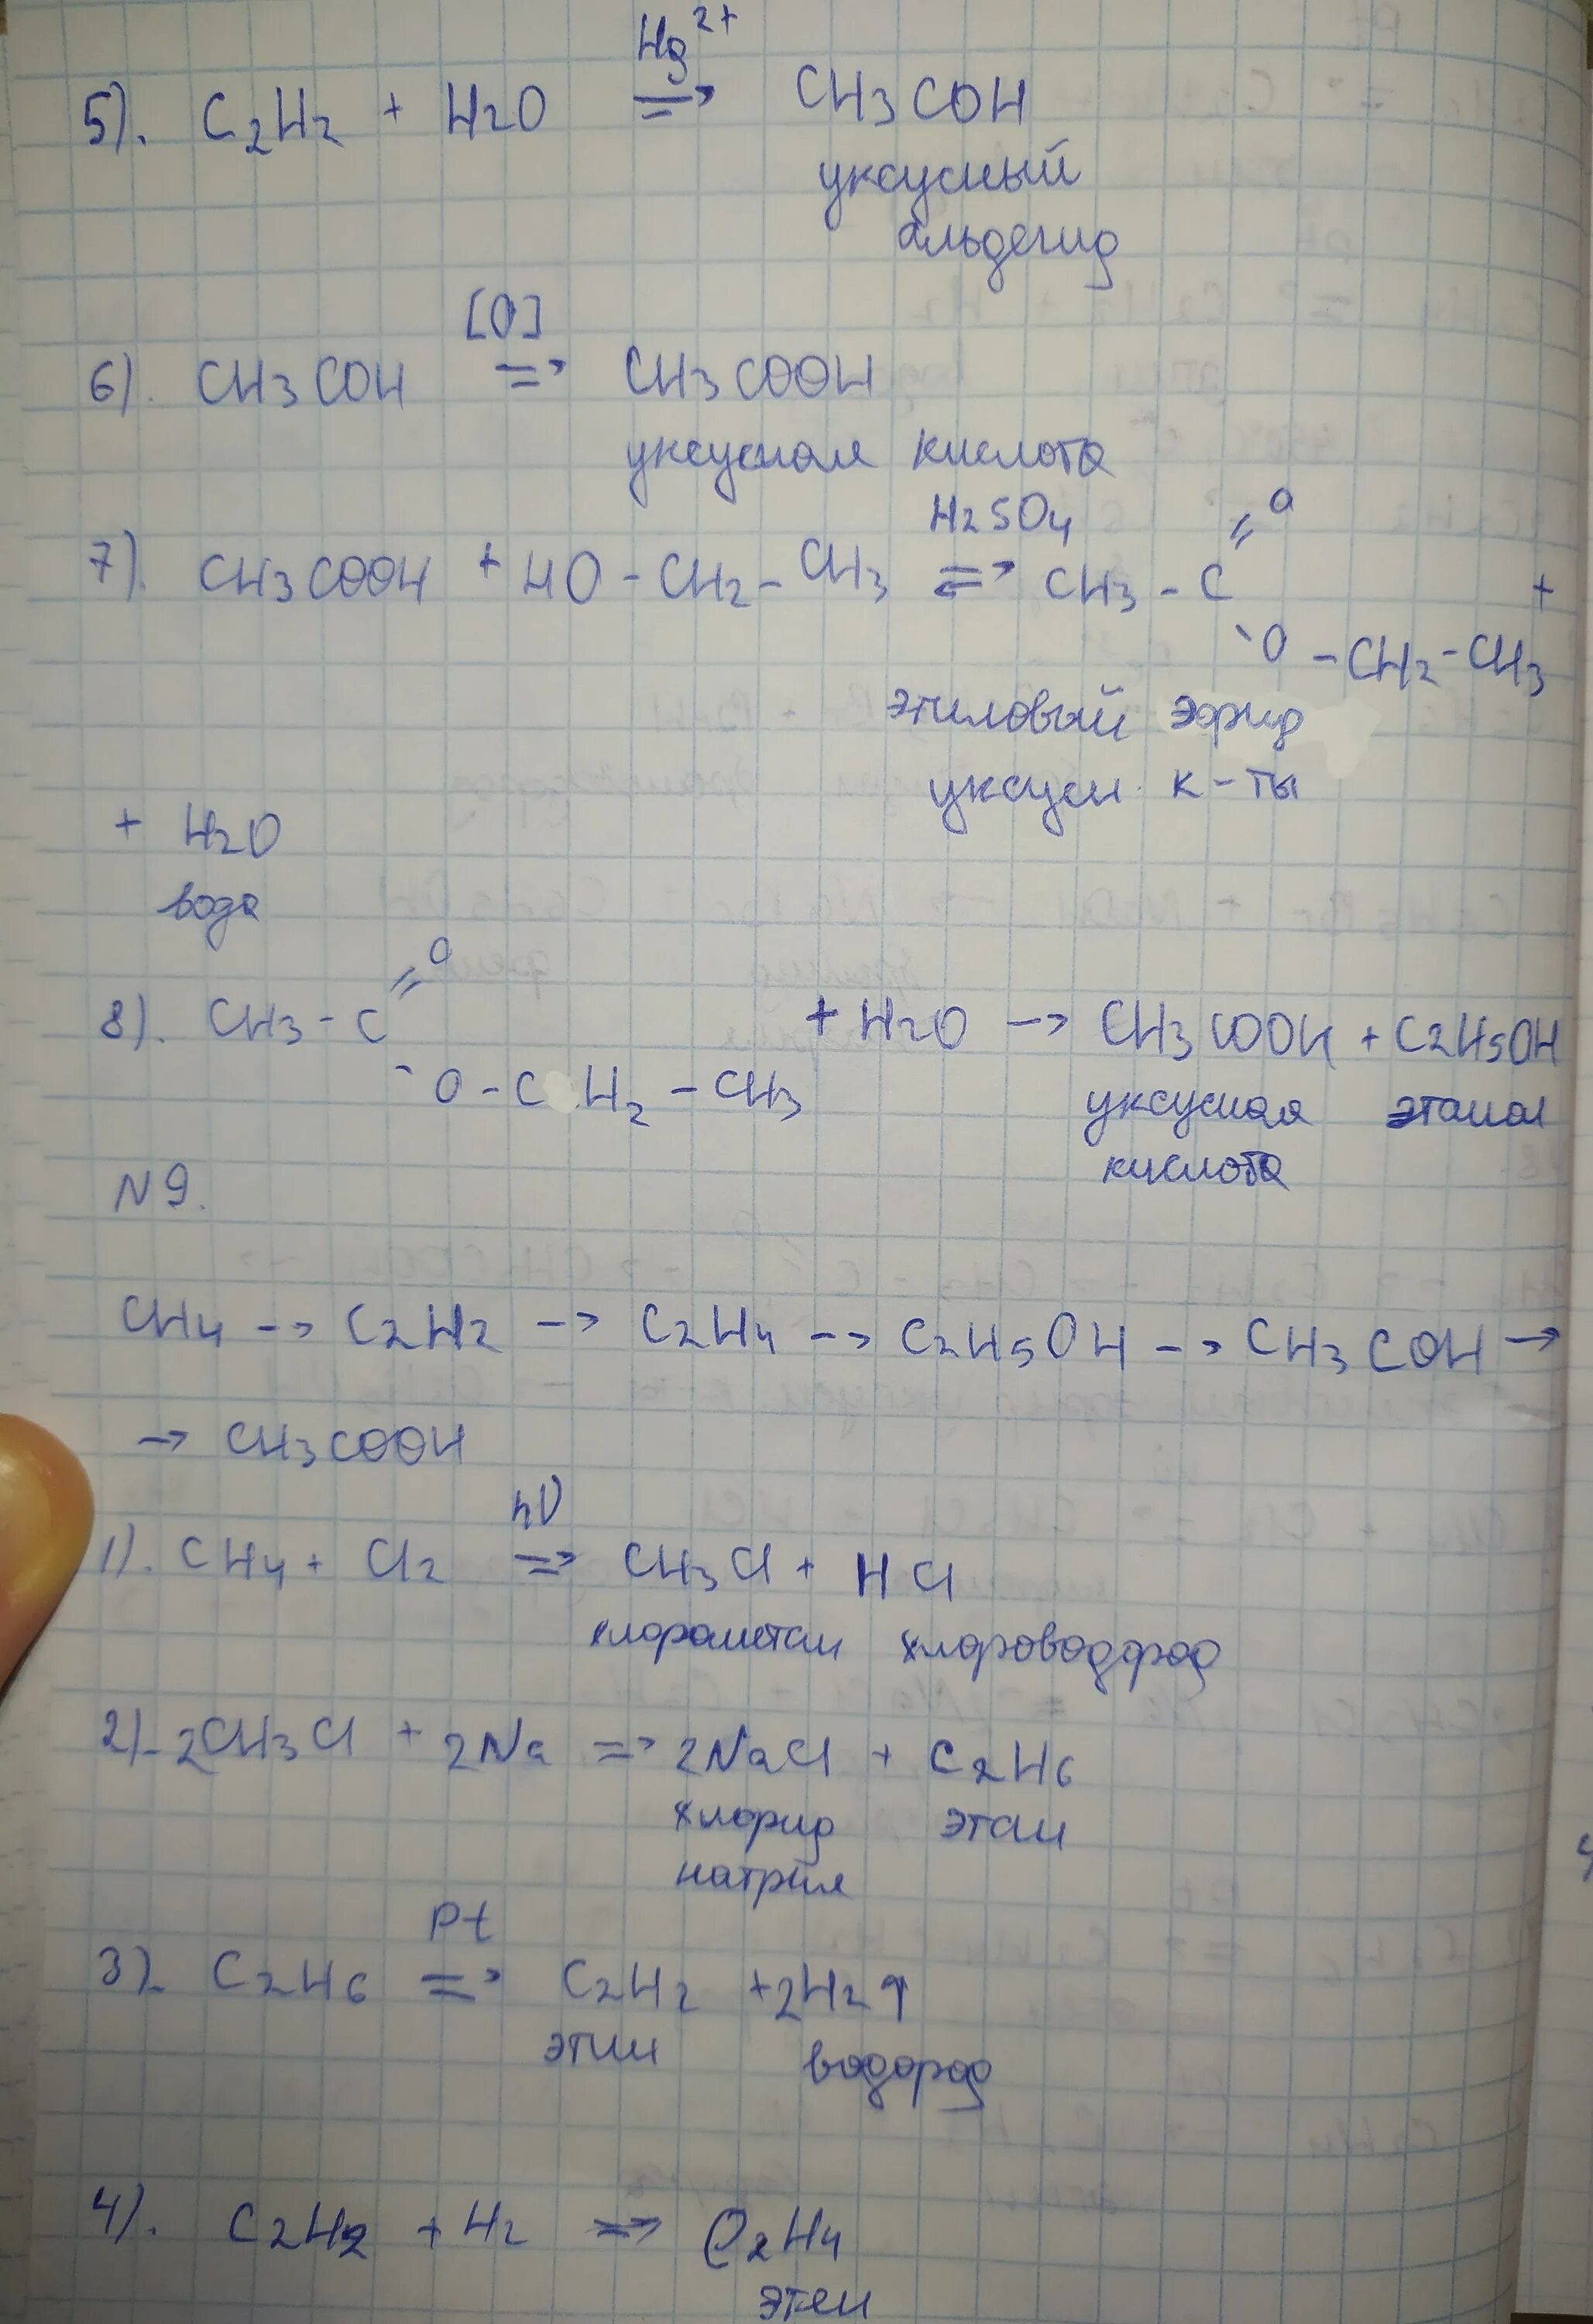 Hg²⁺
5). C₂H₂ + H₂O => CH₃COH
уксусный
альдегид
[O]
6). CH₃COH => CH₃COOH
уксусная кислота
H₂SO₄
7). CH₃COOH + HO - CH₂ - CH₃ ⇌ CH₃ - C = O +
- O - CH₂ - CH₃
этиловый эфир
уксусн. к-ты
+ H₂O
вода
8). CH₃ - C = O + H₂O -> CH₃COOH + C₂H₅OH
- O - CH₂ - CH₃
уксусная этанол
кислота
N9.
CH₄ -> C₂H₂ -> C₂H₄ -> C₂H₅OH -> CH₃COH ->
-> CH₃COOH
hν
1). CH₄ + Cl₂ => CH₃Cl + HCl
хлорометан хлороводород
2). 2CH₃Cl + 2Na => 2NaCl + C₂H₆
хлорид этан
натрия
Pt
3). C₂H₆ => C₂H₂ + 2H₂↑
этин водород
4). C₂H₂ + H₂ => C₂H₄
этен